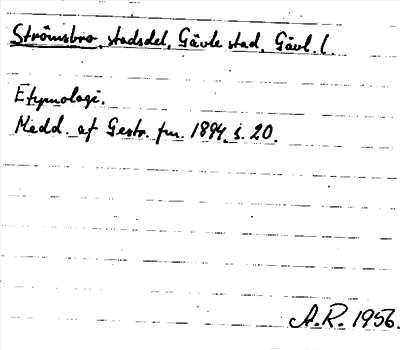 Strömsbro, stadsdel, Gävle stad, Gävl. l.
Etymologi.
Medd. af Gestr. fm. 1894, s. 20.
A.R. 1956.